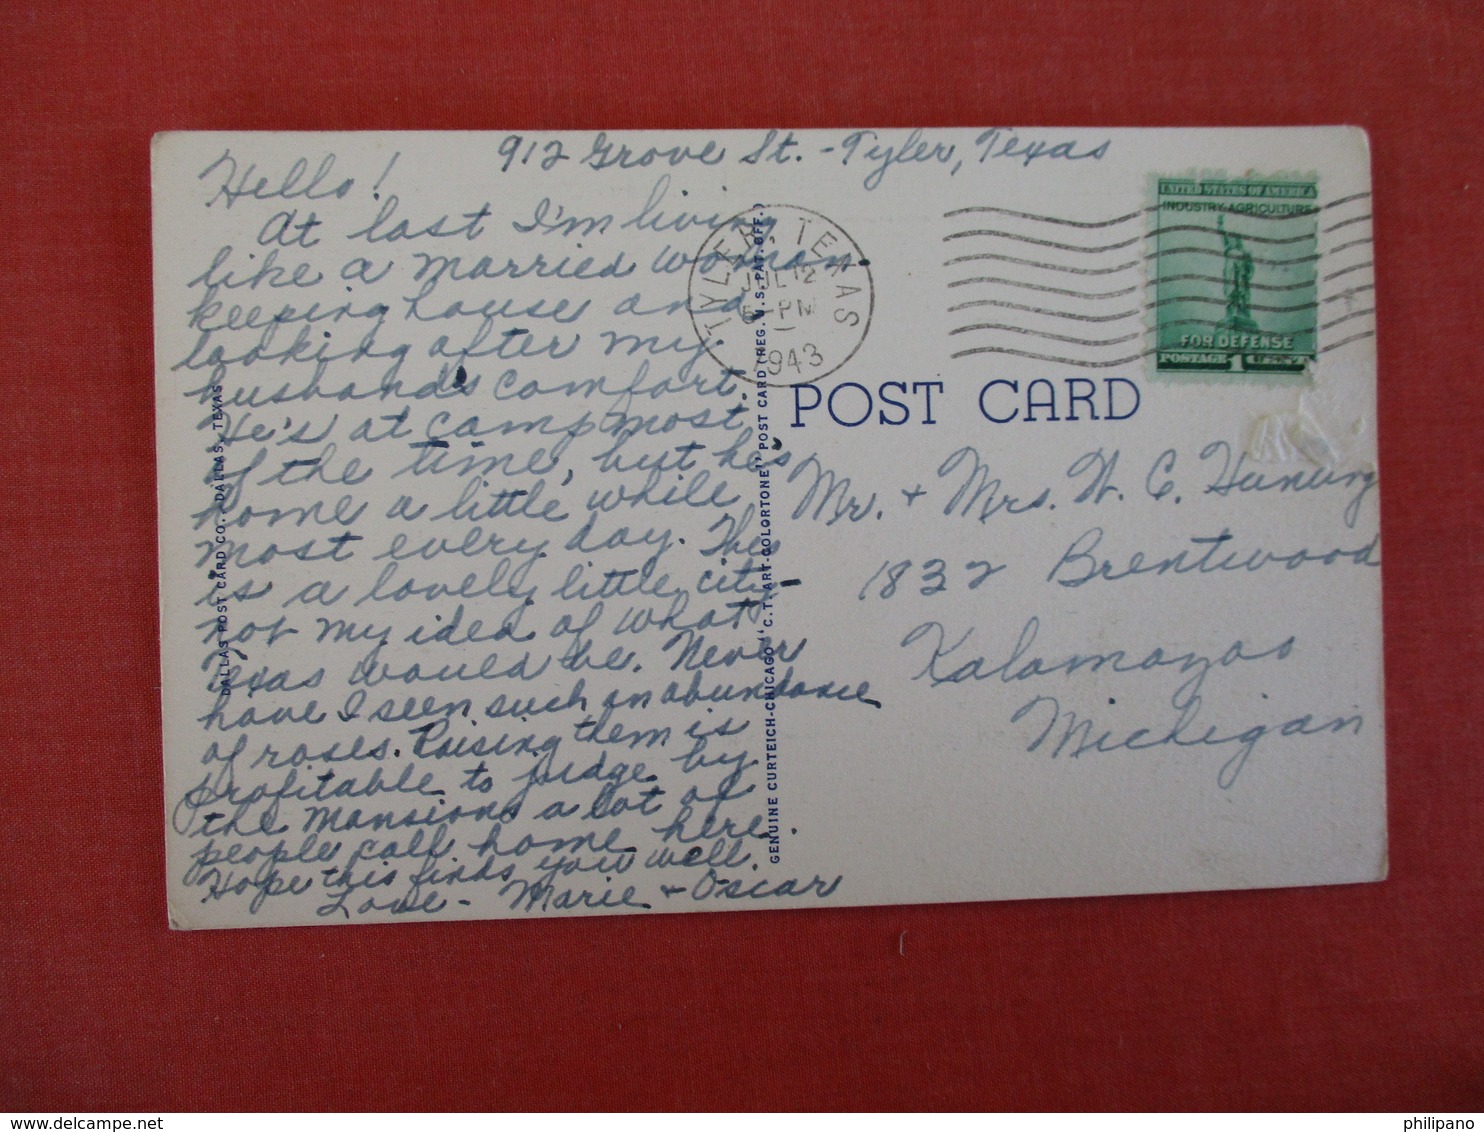 912 Grove St. - Tyler, Texas
Hello!
At last I'm living
like a married woman -
keeping house and
looking after my
husband's comfort.
He's at camp most
of the time, but he's
home a little while
most every day. This
is a lovely little city -
not my idea of what
Texas would be. Never
have I seen such an abundance
of roses. Raising them is
profitable to judge by
the mansions a lot of
people call home here.
Hope this finds you well.
Love - Marie + Oscar
DALLAS POST CARD CO., DALLAS, TEXAS
GENUINE CURTEICH-CHICAGO "C.T. ART-COLORTONE" POST CARD (REG. U.S. PAT. OFF.)
TYLER, TEXAS
JUL 12
5-PM
1943
UNITED STATES OF AMERICA
INDUSTRY-AGRICULTURE
FOR DEFENSE
POSTAGE 1 CENT
POST CARD
Mr. + Mrs. W. C.
1832 Brentwood
Kalamazoo
Michigan
www.delcampe.net
philipano